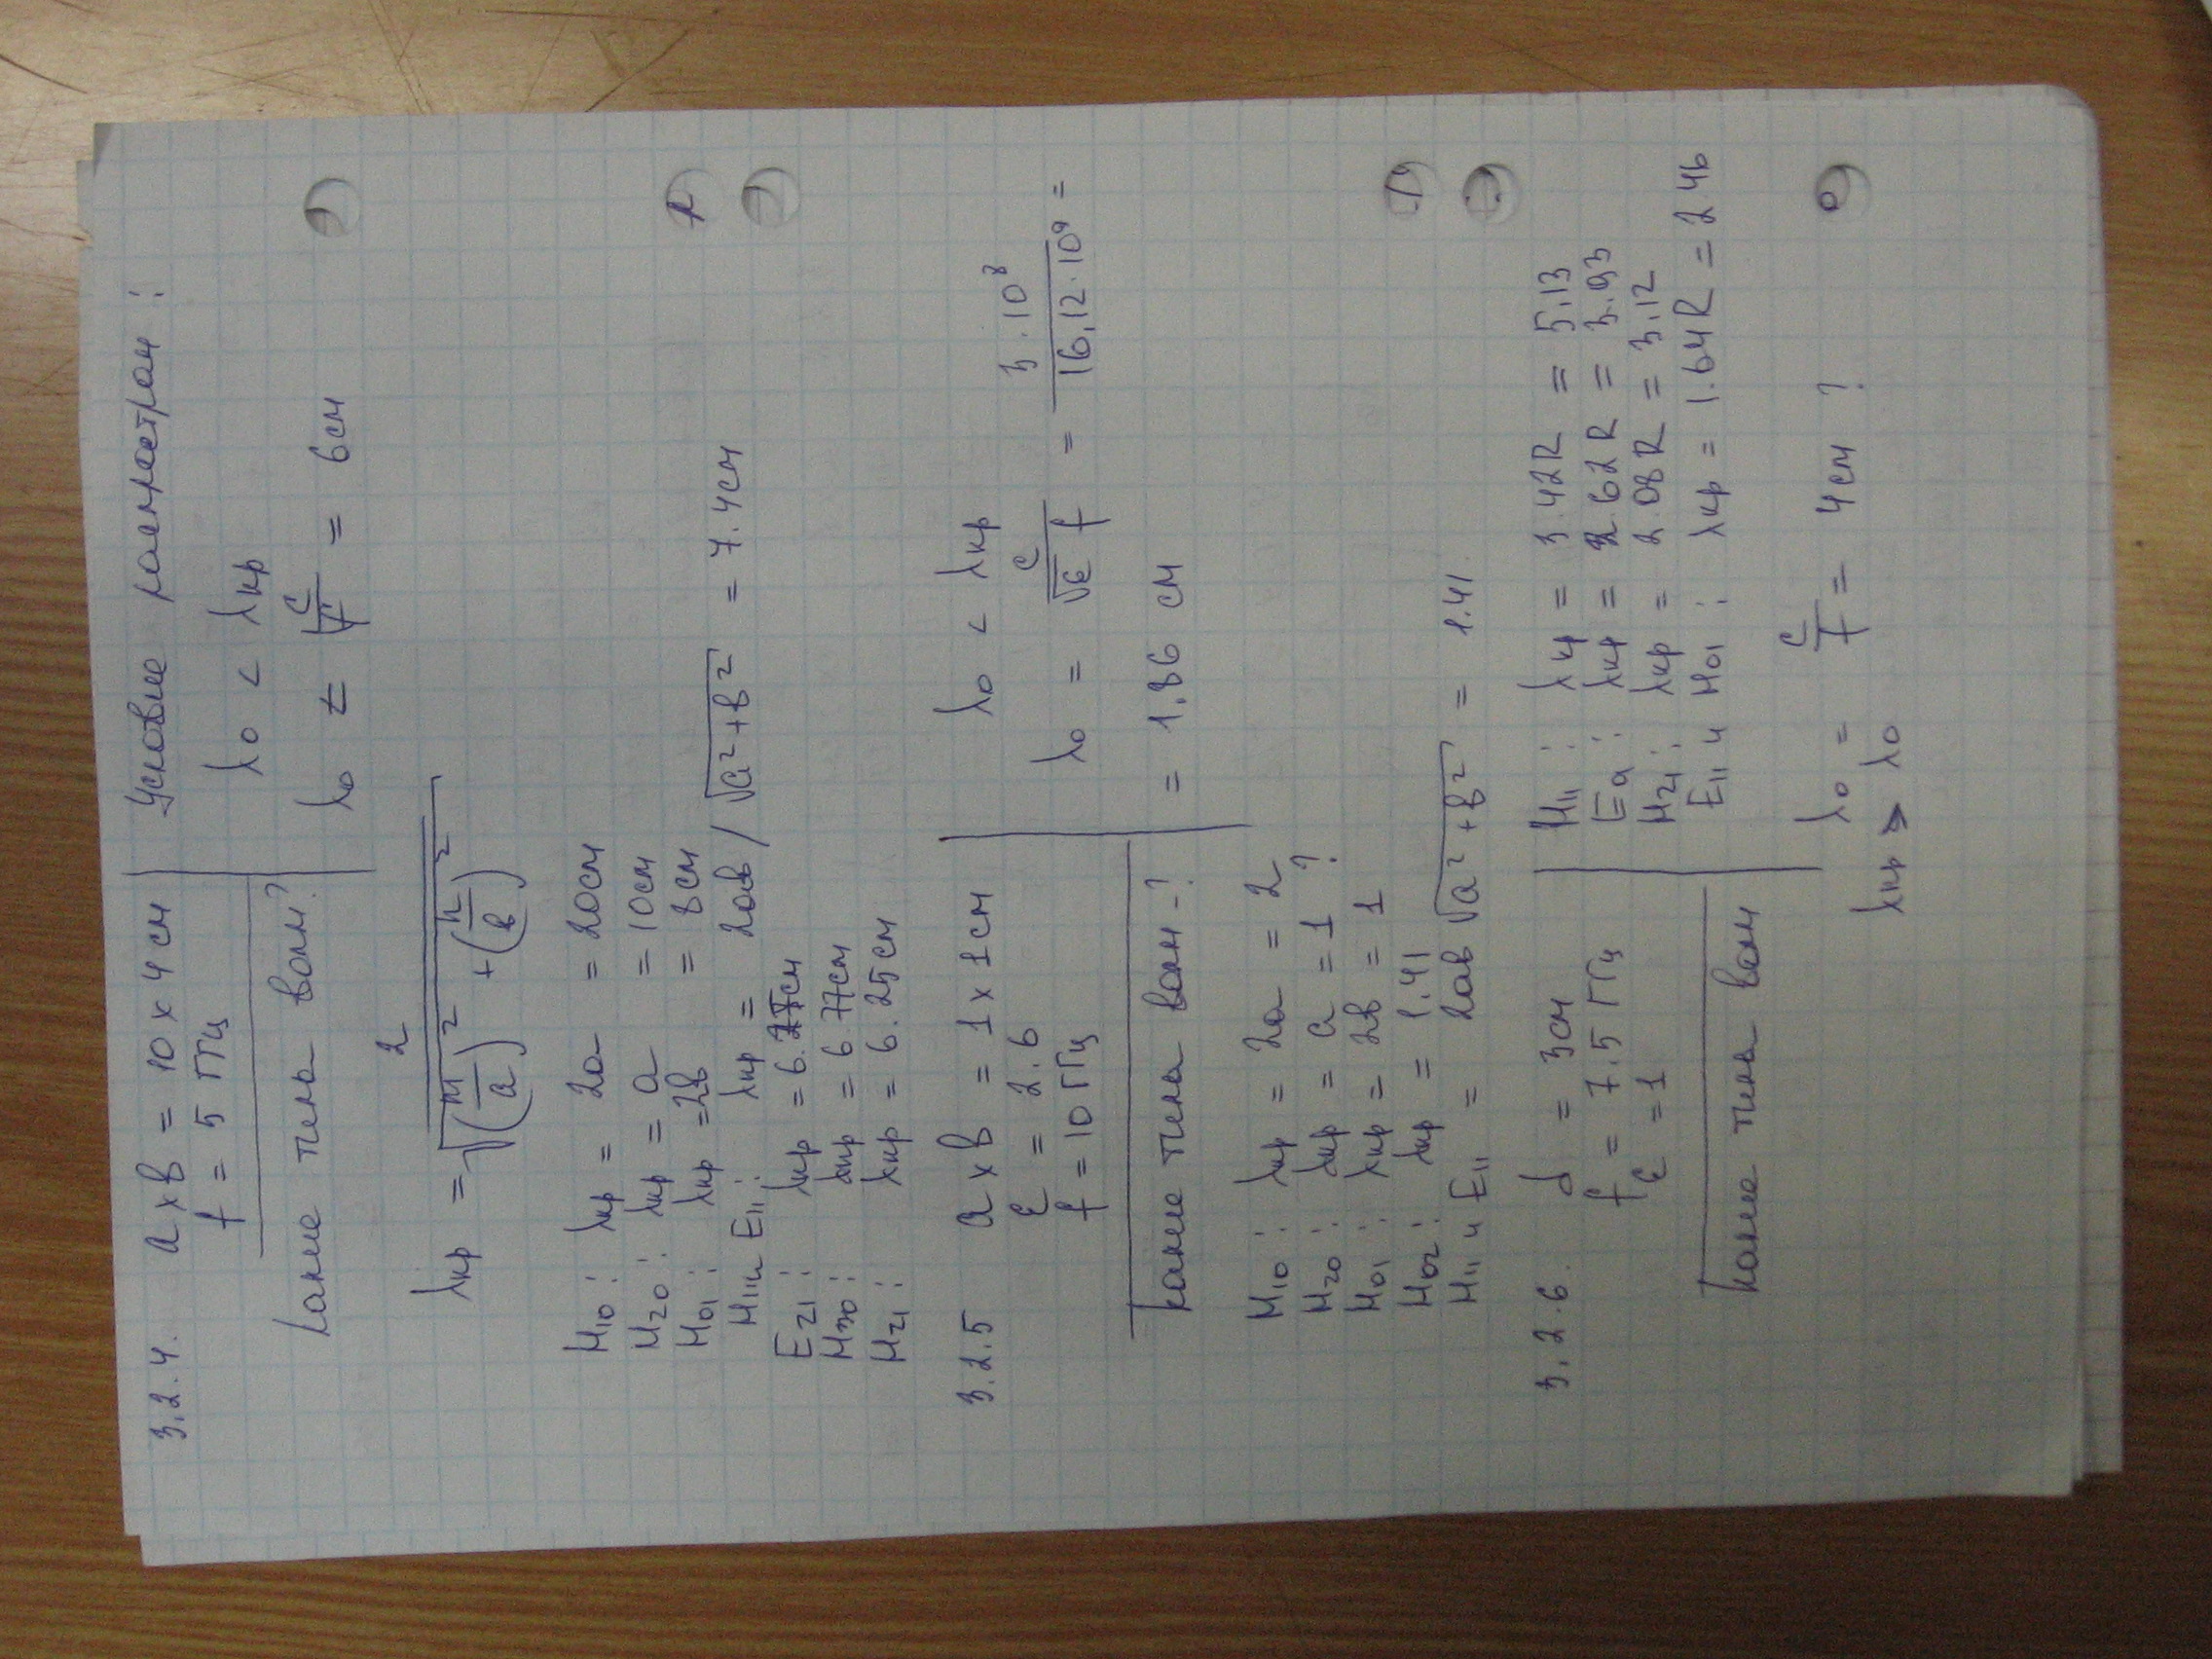 3.2.4. a x b = 10 x 4 см
f = 5 ГГц
Какие типа волн?
Условие распростран:
λ₀ < λкр
λ₀ = c/f = 6см
λкр = 2 / √((m/a)² + (n/b)²)
H₁₀: λкр = 2a = 20см
H₂₀: λкр = a = 10см
H₀₁: λкр = 2b = 8см
H₁₁ и E₁₁: λкр = 2ab / √(a² + b²) = 7.4см
E₂₁: λкр = 6.25см
H₃₀: λкр = 6.77см
H₂₁: λкр = 6.25см
3.2.5 a x b = 1 x 1см
ε = 2.6
f = 10 ГГц
Какие типа волн - ?
λ₀ < λкр
λ₀ = c / (√ε f) = 3·10⁸ / 16,12·10⁹ =
= 1.86 см
H₁₀: λкр = 2a = 2
H₂₀: λкр = a = 1 ?
H₀₁: λкр = 2b = 1
H₀₂: λкр = 1.41
H₁₁ и E₁₁ = 2ab √(a² + b²) = 1.41
3.2.6. d = 3см
f = 7.5 ГГц
ε = 1
Какие типа волн
H₁₁: λкр = 3.42R = 5,13
E₀₁: λкр = 2.62R = 3.93
H₂₁: λкр = 2.08R = 3,12
E₁₁ и H₀₁: λкр = 1.64R = 2.46
λ₀ = c/f = 4см ?
λкр > λ₀